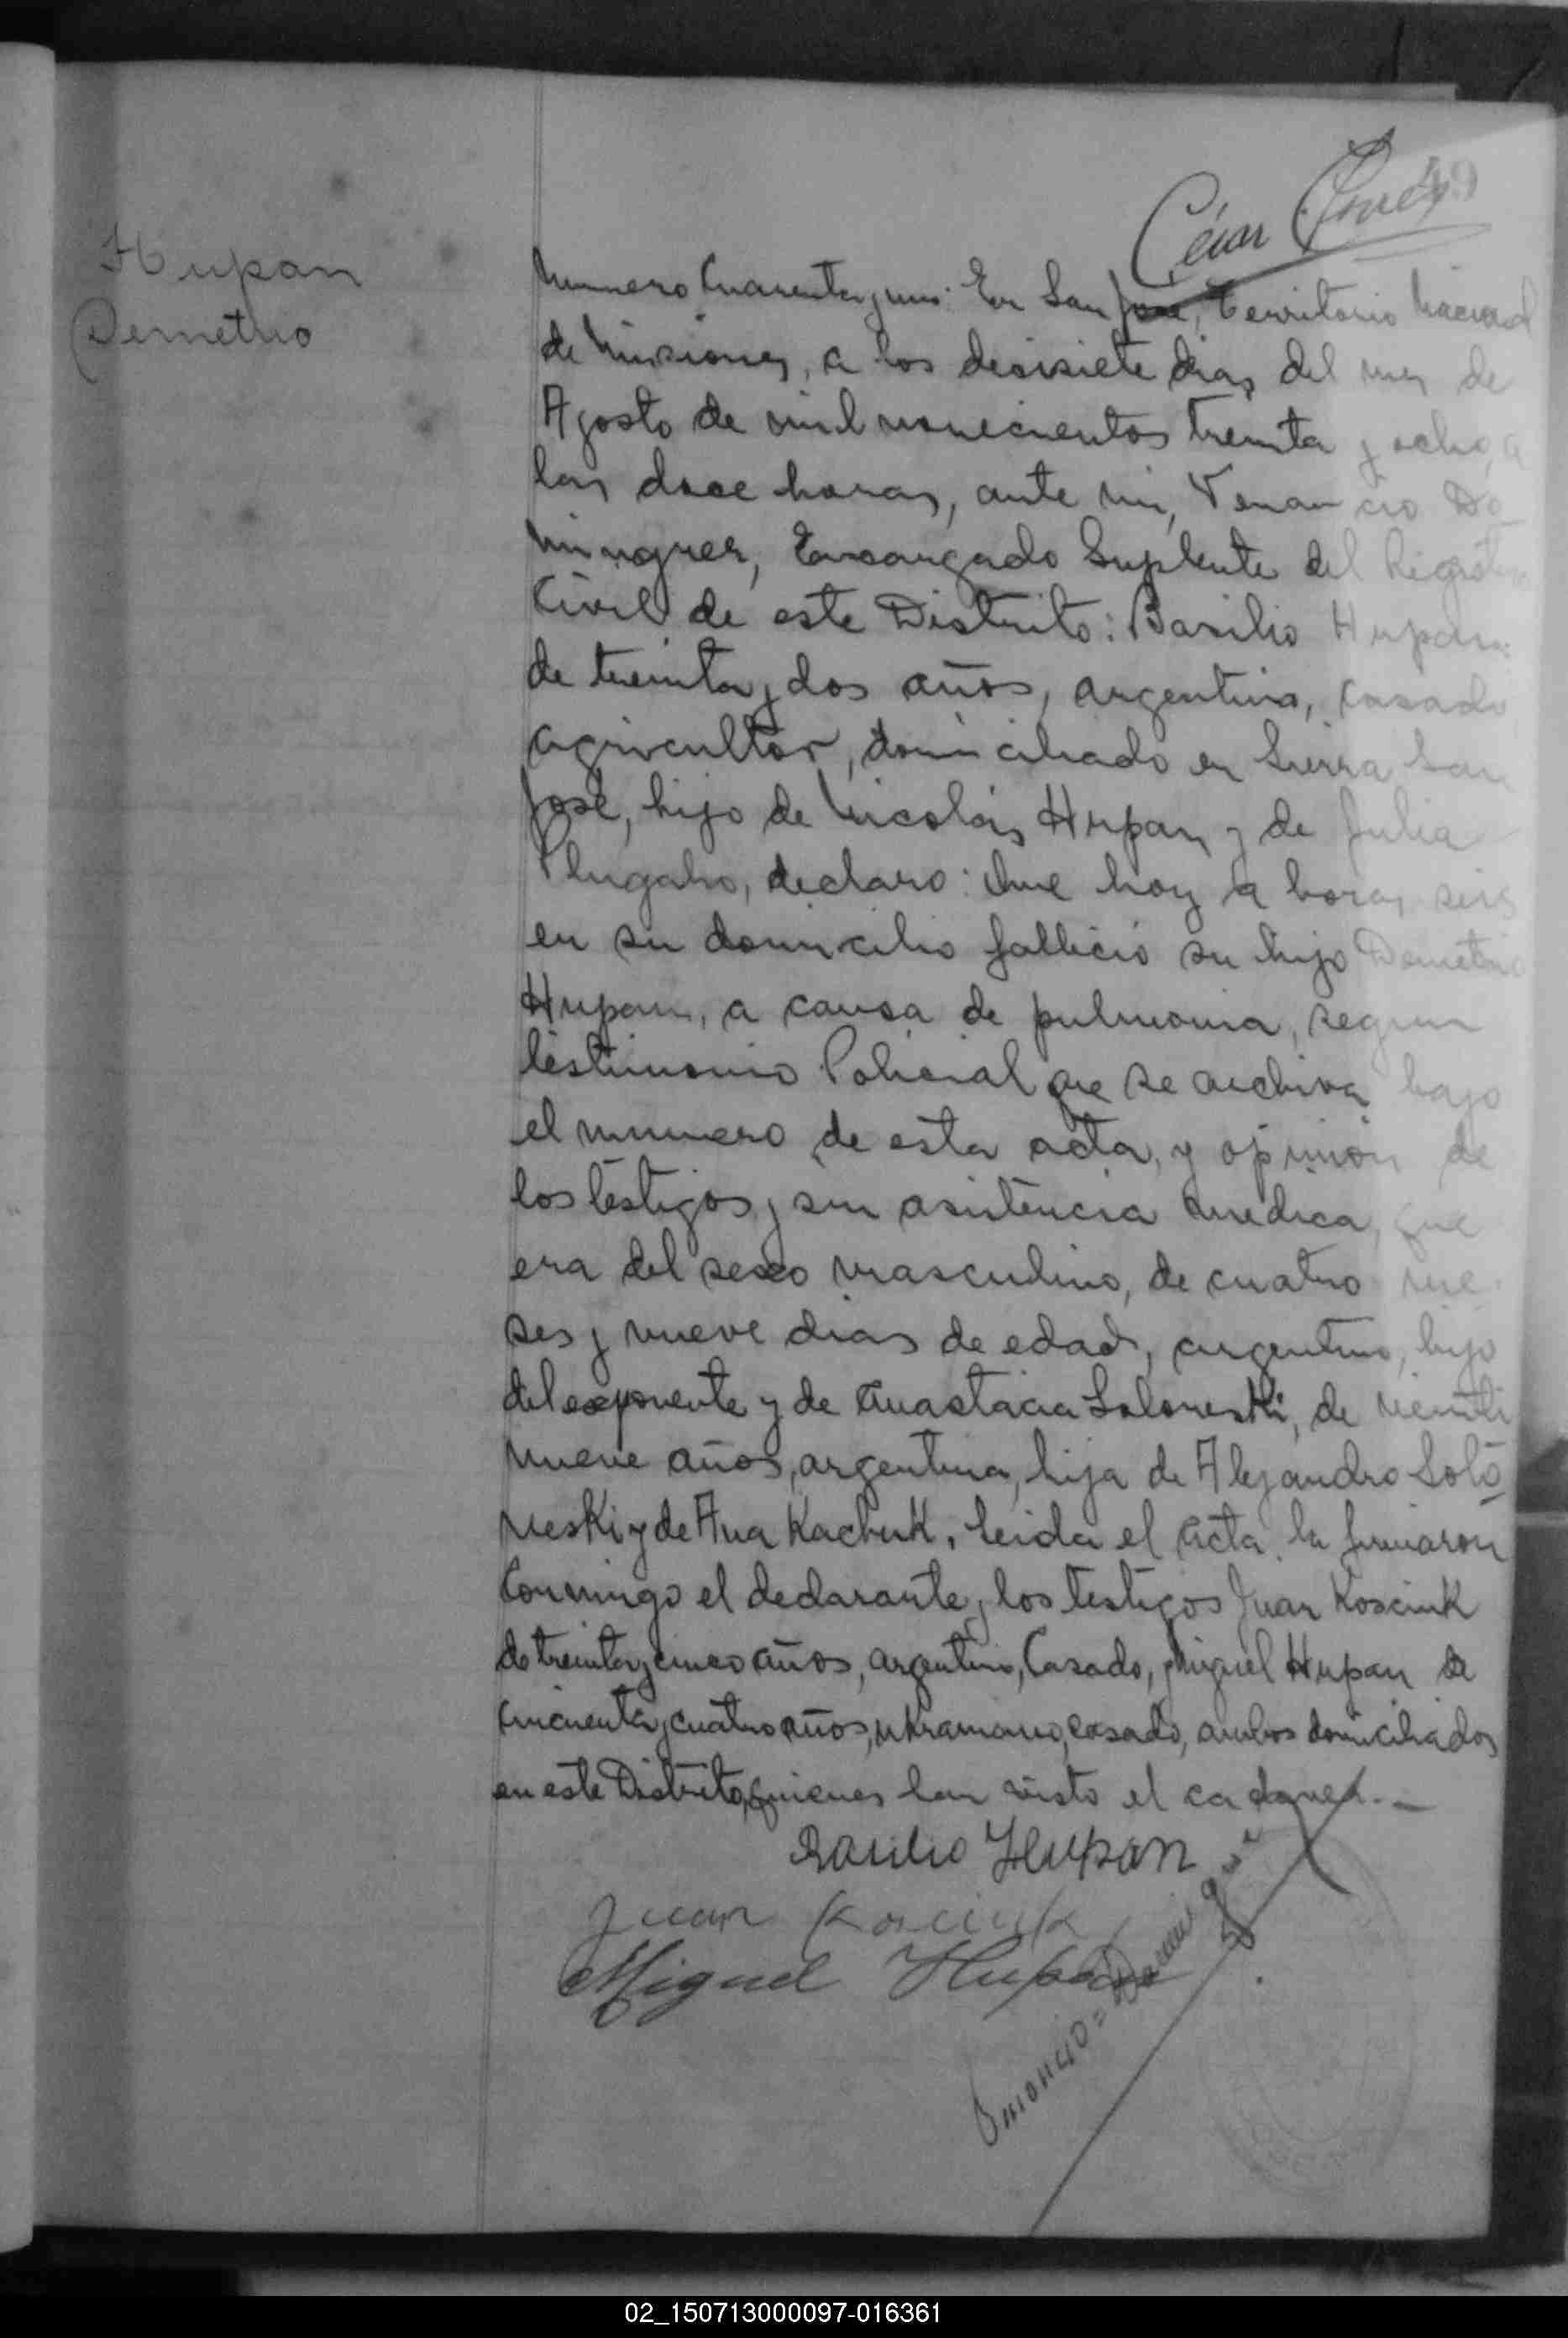 César
49
Hupan
Demetrio
Numero Cuarenta y uno: En San José, Territorio Nacional
de Misiones, a los desisiete dias del mes de
Agosto de mil novecientos treinta y ocho, a
las doce horas, ante mi, Venancio Do
minguez, Encargado Suplente del Registro
Civil de este Distrito: Basilio Hupan
de treinta y dos años, argentino, casado
agricultor, domiciliado en Sierra San
José, hijo de Nicolás Hupan y de Julia
Plugaho, declaro: Que hoy a horas seis
en su domicilio fallecio su hijo Demetrio
Hupan, a causa de pulmonia, segun
testimonio Policial que se archiva bajo
el numero de esta acta, y opinion de
los testigos y sin asistencia medica, que
era del sexo masculino, de cuatro me
ses y nueve dias de edad, argentino, hijo
del exponente y de Anastacia Soloneski, de veinti
nueve años, argentina, hija de Alejandro Solo
neski y de Ana Kachuk, leida el acta la firmaron
conmigo el declarante y los testigos Juan Kosciuk
de treinta y cinco años, argentino, Casado, y Miguel Hupan de
cincuenta y cuatro años, ukraniano, casado, ambos domiciliados
en este Distrito, quienes han visto el cadaver.—
Basilio Hupan
Juan Kosciuk
Miguel Hupan
02_150713000097-016361